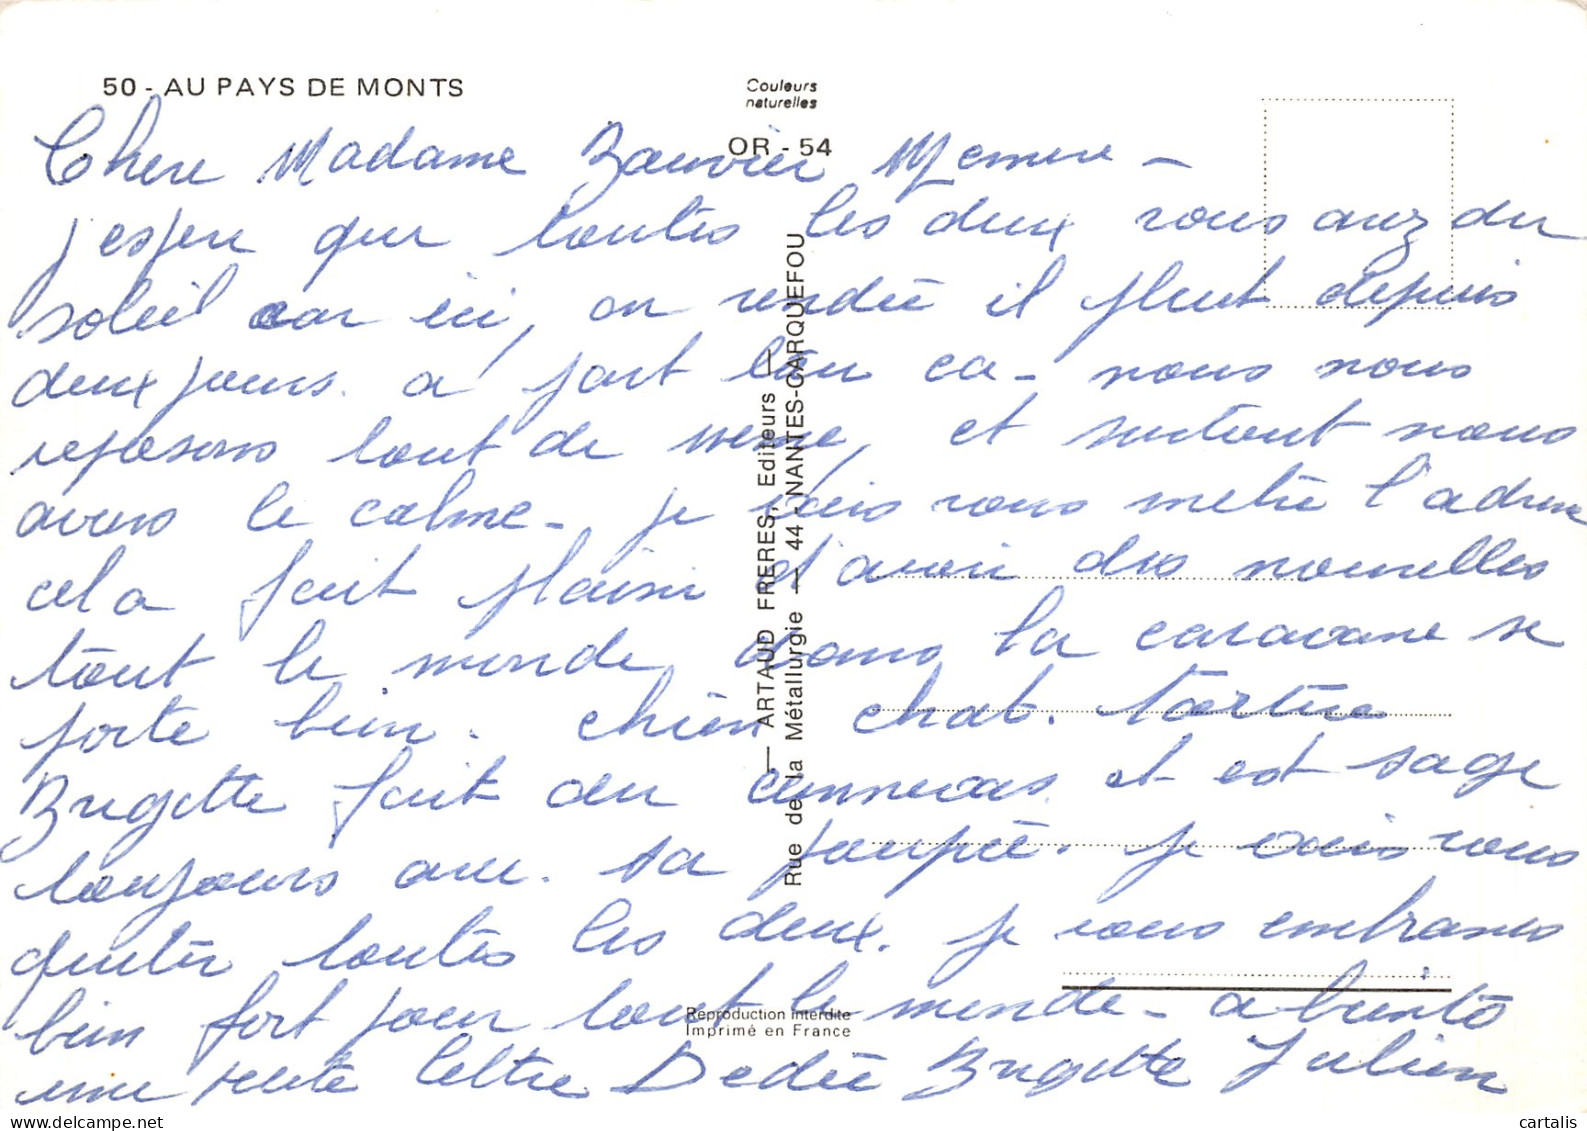 50 - AU PAYS DE MONTS
Couleurs
naturelles
OR - 54
Chere Madame Bouvier Memere -
j'esper que toutes les deux vous avez du
soleil car ici, en vendée il pleut depuis
deux jours. a part bien ca - nous nous
reposons tout de meme, et surtout nous
avons le calme - je vais vous metre l'adresse
cela fait plaisir d'avoir des nouvelles
tout le monde dans la caravane se
porte bien. chien chat. tortue
Brigitte fait du cannevas et est sage
toujours avec sa poupée. je vais vous
quiter toutes les deux. je vous embrasses
bien fort pour tout le monde - a bientô
une petite lettre Dedée Brigitte Julien
— ARTAUD FRERES, Editeurs —
Rue de la Métallurgie — 44 - NANTES-CARQUEFOU
Reproduction interdite
Imprimé en France
cartalis